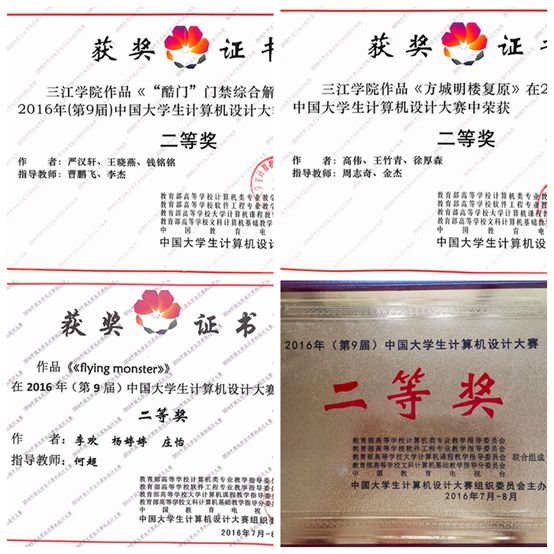 获奖证书
三江学院作品《“酷门”门禁综合解
2016年(第9届)中国大学生计算机设计大
二等奖
作 者：严汉轩、王晓燕、钱铭铭
指导教师：曹鹏飞、李杰
教育部高等学校计算机类专业教学
教育部高等学校软件工程专业教学
教育部高等学校大学计算机课程教
教育部高等学校文科计算机基础教学
中国教育电
中国大学生计算机设计
获奖证书
三江学院作品《方城明楼复原》在2
中国大学生计算机设计大赛中荣获
二等奖
作 者：高伟、王竹青、徐厚森
指导教师：周志奇、金杰
教育部高等学校计算机类专业
教育部高等学校软件工程专业
教育部高等学校大学计算机课程
教育部高等学校文科计算机基础
中国教育
中国大学生计算机设
获奖证书
作品《«flying monster»》
在 2016 年（第 9 届）中国大学生计算机设计大赛
二等奖
作 者：李欢 杨婷婷 庄怡
指导教师：何超
教育部高等学校计算机类专业教学指导委员会
教育部高等学校软件工程专业教学指导委员会
教育部高等学校大学计算机课程教学指导委员会
教育部高等学校文科计算机基础教学指导分委员会
中国教育电视台
中国大学生计算机设计大赛组织委
2016年7月-8
2016年（第9届）中国大学生计算机设计大赛
二等奖
教育部高等学校计算机类专业教学指导委员会
教育部高等学校软件工程专业教学指导委员会
教育部高等学校大学计算机课程教学指导委员会 联合组成
教育部高等学校文科计算机基础教学指导分委员会
中国教育电视台
中国大学生计算机设计大赛组织委员会主办
2016年7月-8月